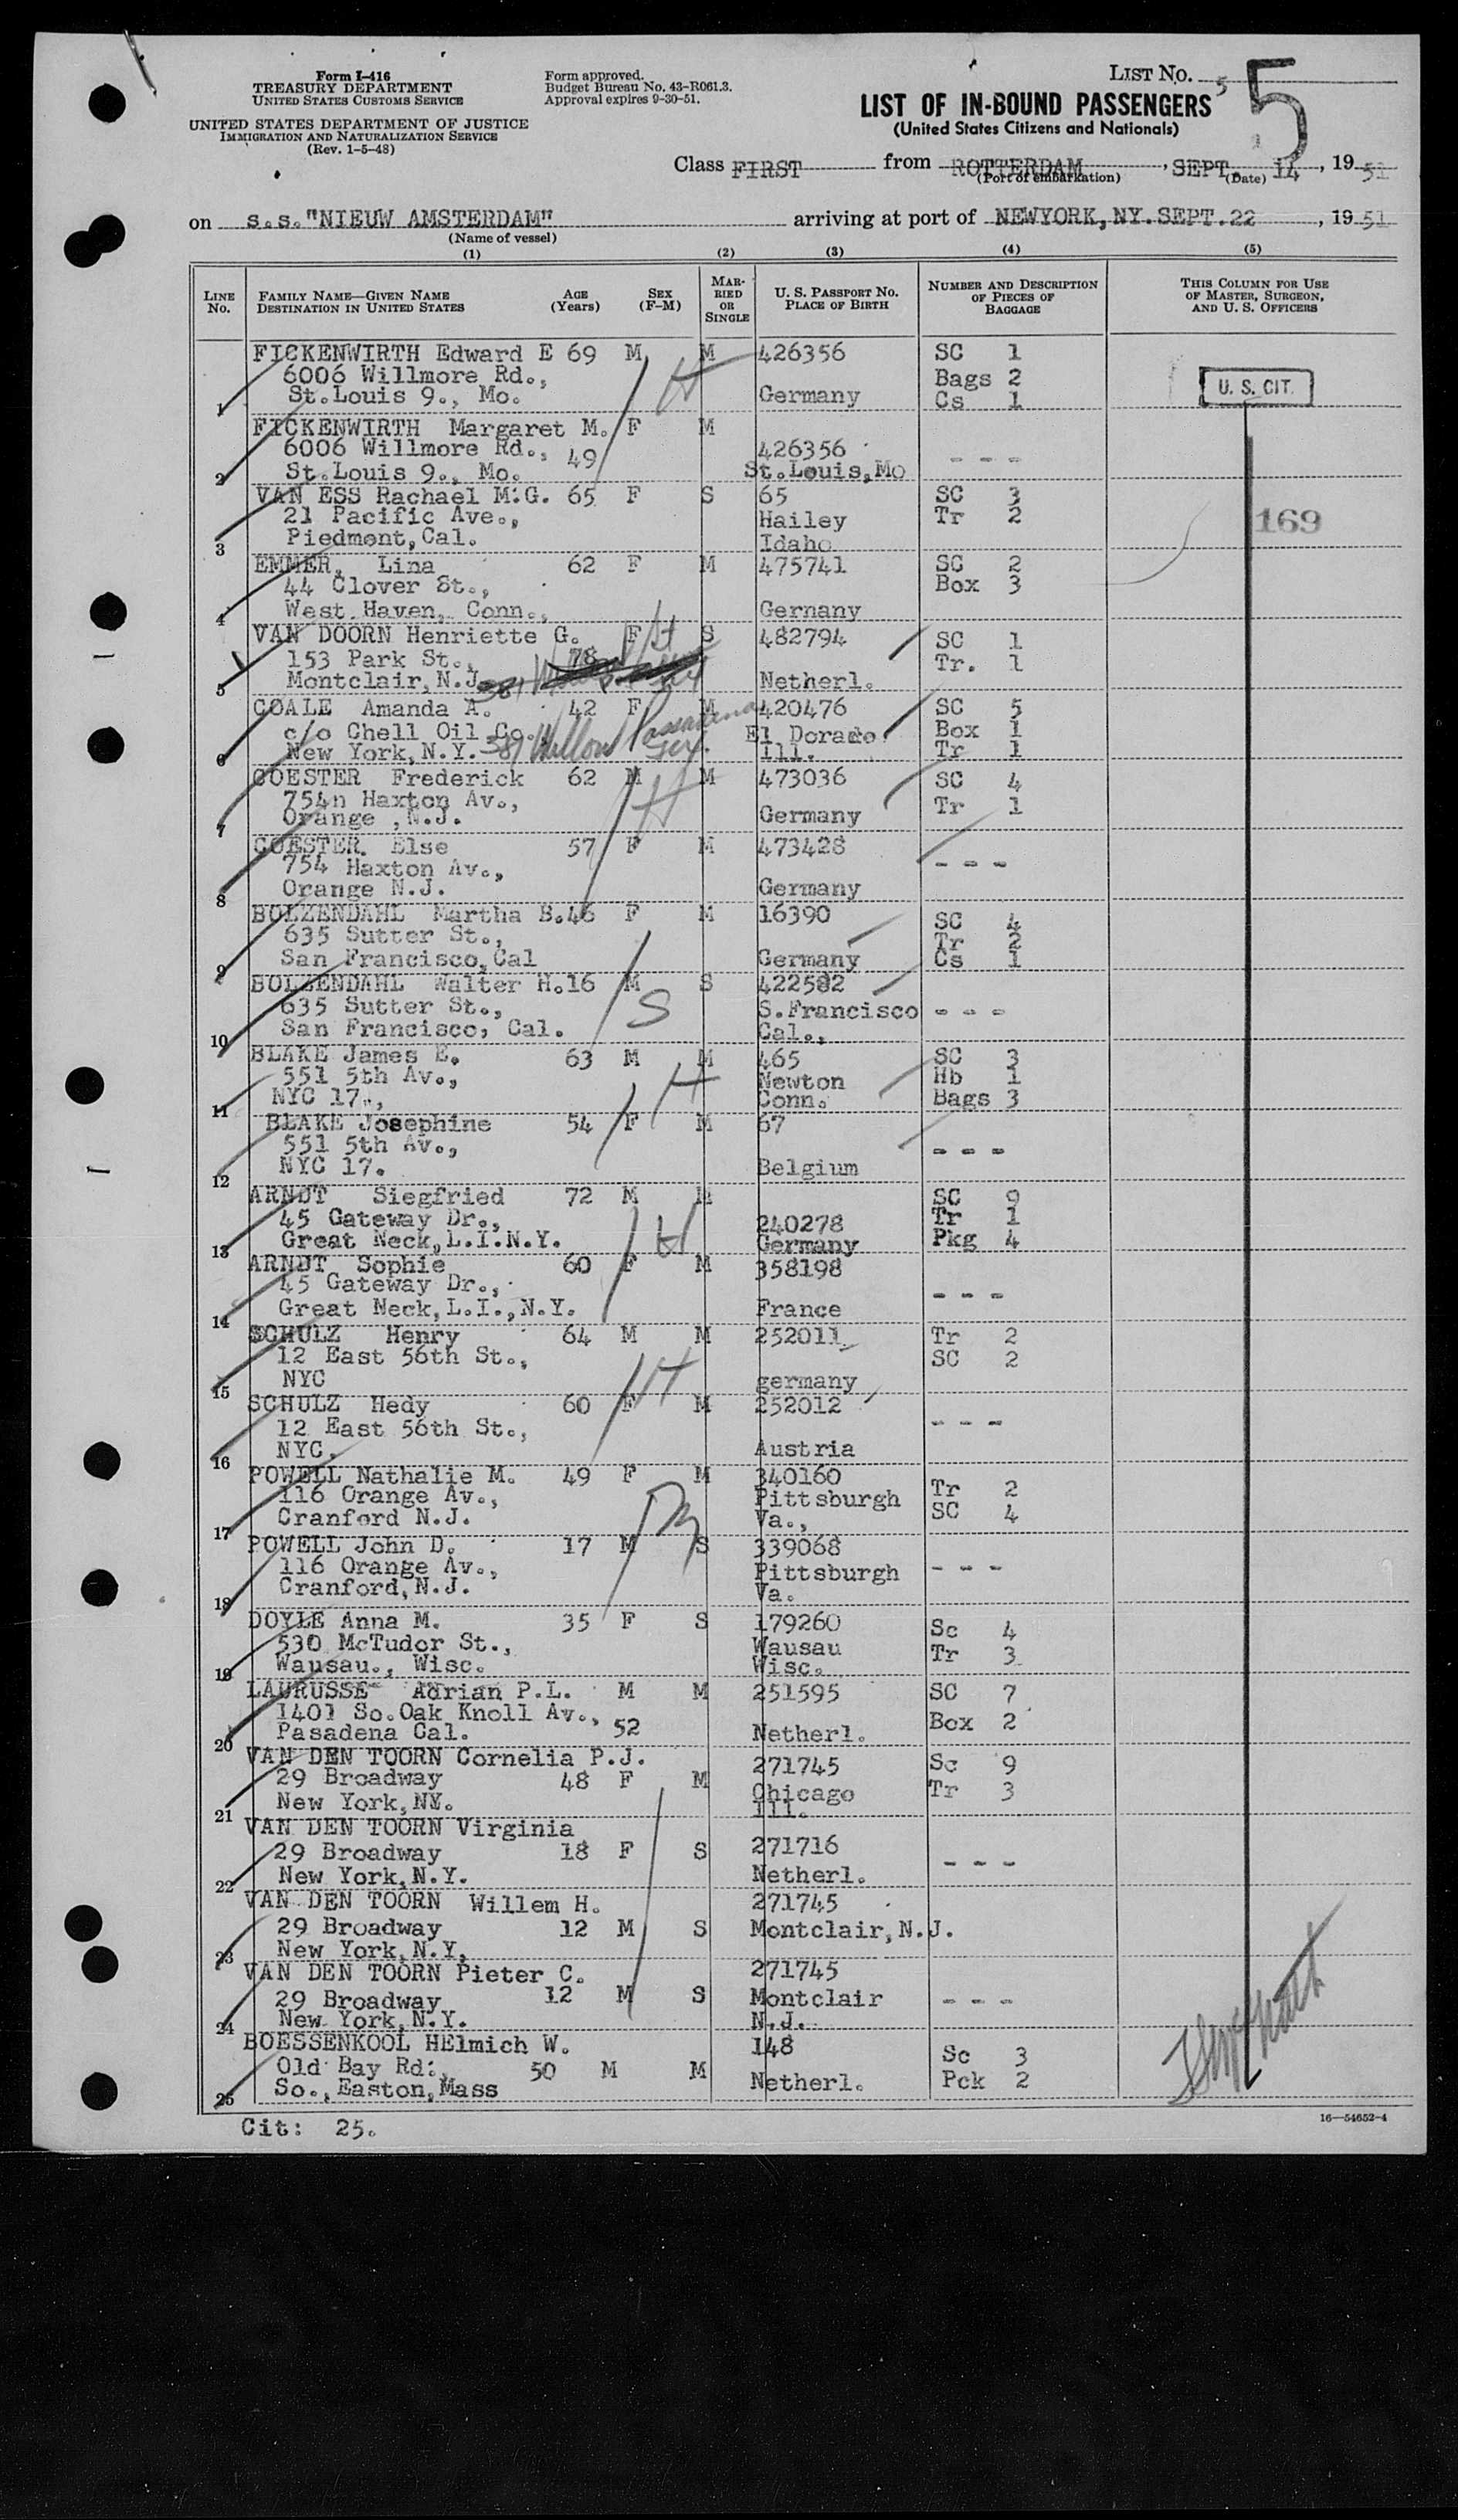 Form I-416
TREASURY DEPARTMENT
UNITED STATES CUSTOMS SERVICE
UNITED STATES DEPARTMENT OF JUSTICE
IMMIGRATION AND NATURALIZATION SERVICE
(Rev. 1-5-48)
Form approved.
Budget Bureau No. 43-R061.3.
Approval expires 9-30-51.
LIST NO. 5
5
LIST OF IN-BOUND PASSENGERS
(United States Citizens and Nationals)
Class FIRST from ROTTERDAM, SEPT. 14, 1951
(Port of embarkation) (Date)
on s.s."NIEUW AMSTERDAM" arriving at port of NEWYORK,NY.SEPT.22, 1951
(Name of vessel)
(1) (2) (3) (4) (5)
LINE NO. FAMILY NAME—GIVEN NAME DESTINATION IN UNITED STATES AGE (Years) SEX (F-M) MARRIED OR SINGLE U. S. PASSPORT NO. PLACE OF BIRTH NUMBER AND DESCRIPTION OF PIECES OF BAGGAGE THIS COLUMN FOR USE OF MASTER, SURGEON, AND U. S. OFFICERS
FICKENWIRTH Edward E 69 M M 426356 SC 1
6006 Willmore Rd., Bags 2 U. S. CIT.
1 St.Louis 9., Mo. Germany Cs 1
FICKENWIRTH Margaret M. F M
6006 Willmore Rd., 49 426356 - - -
2 St.Louis 9., Mo. St.Louis,Mo
VAN ESS Rachael M.G. 65 F S 65 SC 3
21 Pacific Ave., Hailey Tr 2 169
3 Piedmont,Cal. Idaho
EMMER, Lina 62 F M 475741 SC 2
44 Clover St., Box 3
4 West Haven, Conn., Gernany
VAN DOORN Henriette G. F S 482794 SC 1
153 Park St., 78 Tr. 1
5 Montclair,N.J. Netherl.
COALE Amanda A. 42 F M 420476 SC 5
c/o Chell Oil Co. El Dorado Box 1
6 New York,N.Y. 381 Willow Pasadena Tex. Ill. Tr 1
COESTER Frederick 62 M M 473036 SC 4
754n Haxton Av., Tr 1
7 Orange ,N.J. Germany
COESTER Else 57 F M 473428
754 Haxton Av., - - -
8 Orange N.J. Germany
BOLZENDAHL Martha B.46 F M 16390 SC 4
635 Sutter St., Tr 2
9 San Francisco,Cal Germany Cs 1
BOLZENDAHL Walter H.16 M S 422582
635 Sutter St., S.Francisco - - -
10 San Francisco, Cal. Cal.,
BLAKE James E. 63 M M 465 SC 3
551 5th Av., Newton Hb 1
11 NYC 17., Conn. Bags 3
BLAKE Josephine 54 F M 67
551 5th Av., - - -
12 NYC 17. Belgium
ARNDT Siegfried 72 M M SC 9
45 Gateway Dr., 240278 Tr 1
13 Great Neck,L.I.N.Y. Germany Pkg 4
ARNDT Sophie 60 F M 358198
45 Gateway Dr., - - -
14 Great Neck,L.I.,N.Y. France
SCHULZ Henry 64 M M 252011 Tr 2
12 East 56th St., SC 2
15 NYC germany
SCHULZ Hedy 60 F M 252012
12 East 56th St., - - -
16 NYC. Austria
POWELL Nathalie M. 49 F M 340160 Tr 2
116 Orange Av., Pittsburgh SC 4
17 Cranford N.J. Va.,
POWELL John D. 17 M S 339068
116 Orange Av., Pittsburgh - - -
18 Cranford,N.J. Va.
DOYLE Anna M. 35 F S 179260 Sc 4
530 McTudor St., Wausau Tr 3
19 Wausau., Wisc. Wisc.
LABRUSSE Adrian P.L. M M 251595 SC 7
1401 So.Oak Knoll Av., 52 Box 2
20 Pasadena Cal. Netherl.
VAN DEN TOORN Cornelia P.J. 271745 Sc 9
29 Broadway 48 F M Chicago Tr 3
21 New York,NY. Ill.
VAN DEN TOORN Virginia 271716
29 Broadway 18 F S - - -
22 New York,N.Y. Netherl.
VAN DEN TOORN Willem H. 271745
29 Broadway 12 M S Montclair,N.J.
23 New York,N.Y.
VAN DEN TOORN Pieter C. 271745
29 Broadway 12 M S Montclair - - -
24 New York,N.Y. N.J.
BOESSENKOOL HElmich W. 148 Sc 3
Old Bay Rd:, 50 M M Netherl. Pck 2
25 So.,Easton,Mass
Cit: 25.
16—54652-4